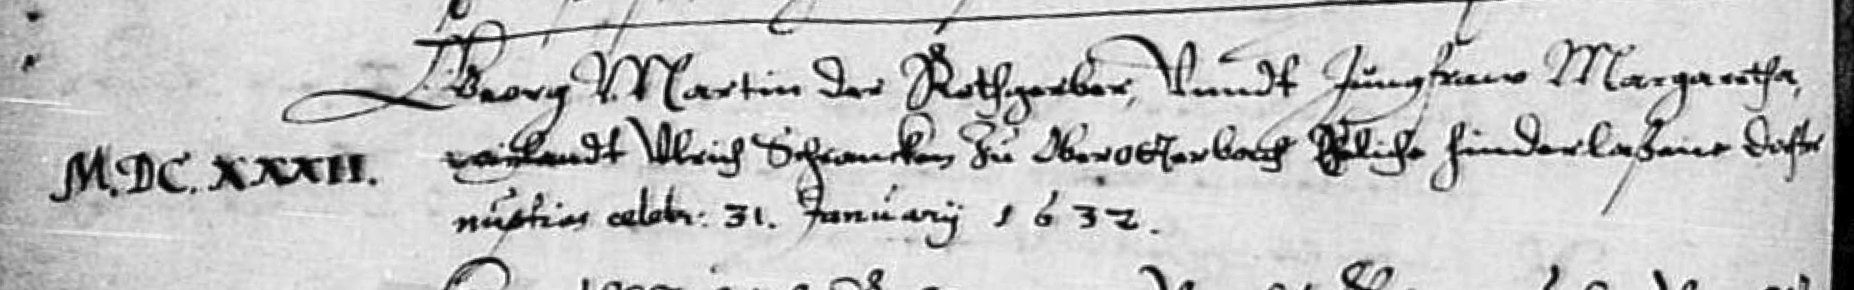 Georg Martin der Rothgerber, Vnndt Jungfraw Margaretha,
M.DC.XXXII. weilandt Vlrich Schrancken Zu Oberosterbach Eheliche hinderlaßene dochter
nuptias celebr: 31. Januarij 1632.